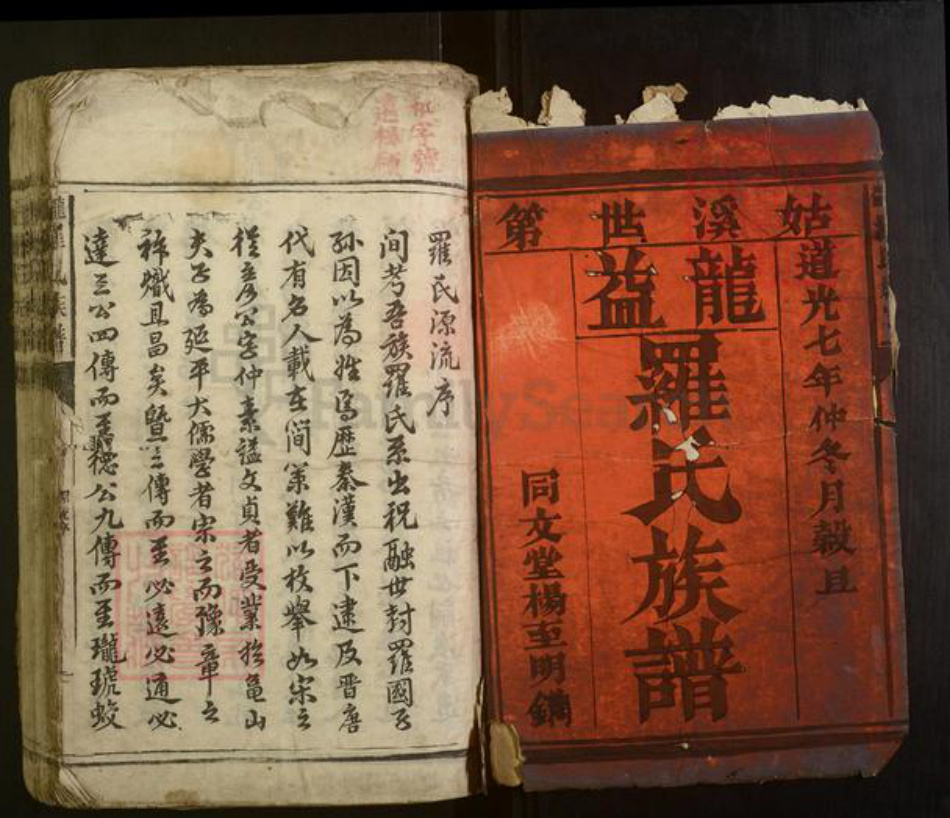 姑溪世第
道光七年仲冬月穀旦
龍益
羅氏族譜
同文堂楊至明鐫
羅氏源流序
間考吾族羅氏系出祝融世封羅國子
孫因以為姓焉歷秦漢而下逮及晋唐
代有名人載在簡策難以枚舉如宋之
從彥公字仲素謚文貞者受業於龜山
夫子為延平大儒學者宗之而豫章之
裔熾且昌矣暨三傳而至必遠必通必
達三公四傳而至德公九傳而至瓏琥蛟
FamilySearch